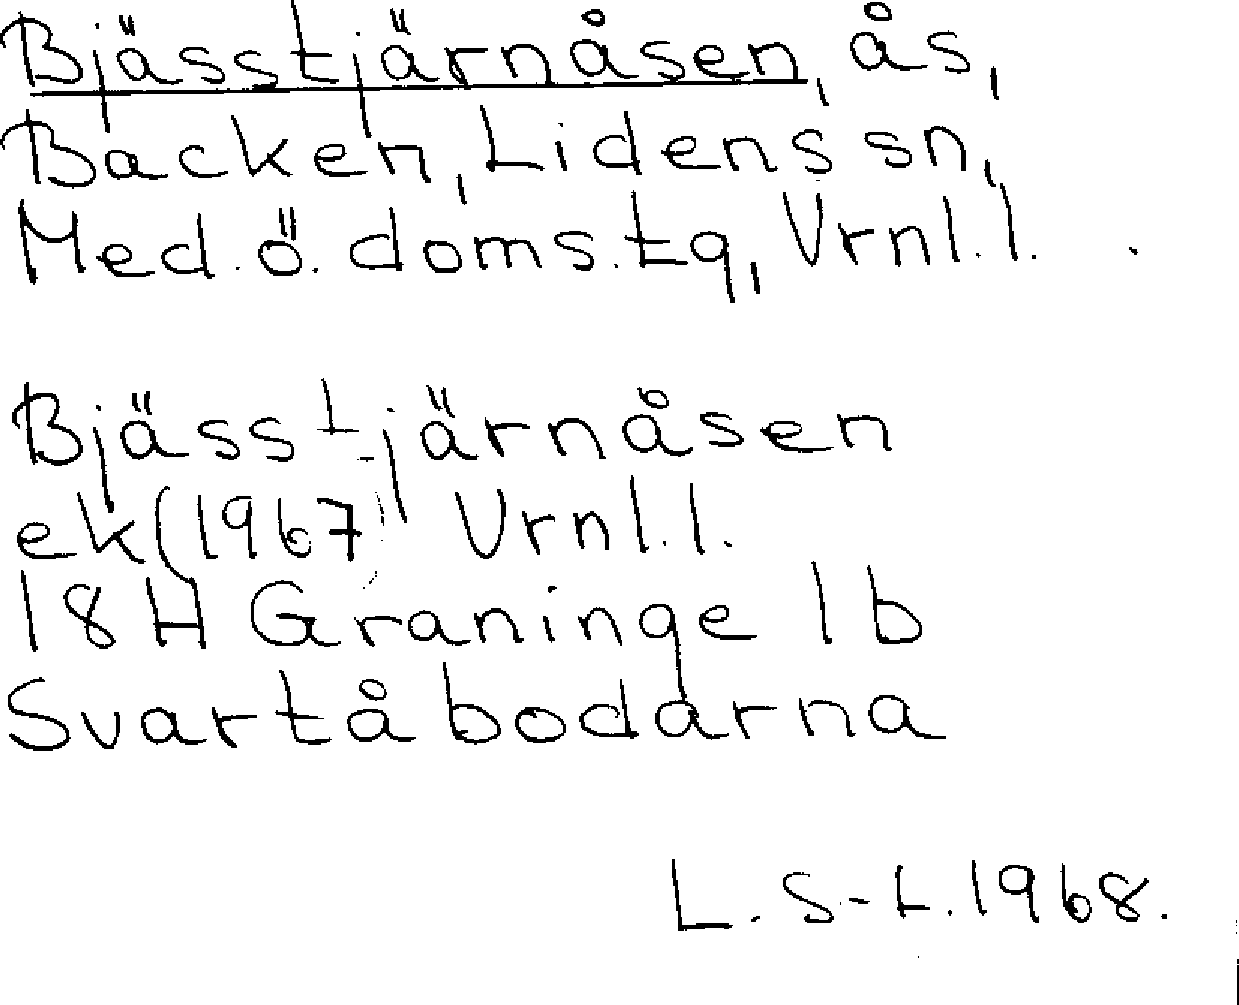 Bjässtjärnåsen, ås,
Backen, Lidens sn,
Med. ö. doms.tg, Vrnl.l.
Bjässtjärnåsen
ek(1967) Vrnl.l.
18H Graninge 1b
Svartåbodarna
L. S-L. 1968.